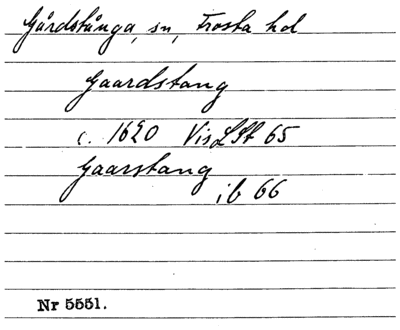 Gårdstånga, sn, Frosta hd
Gaardstang
c. 1620 VisLSt 65
Gaarstang
ib 66
Nr 5551.